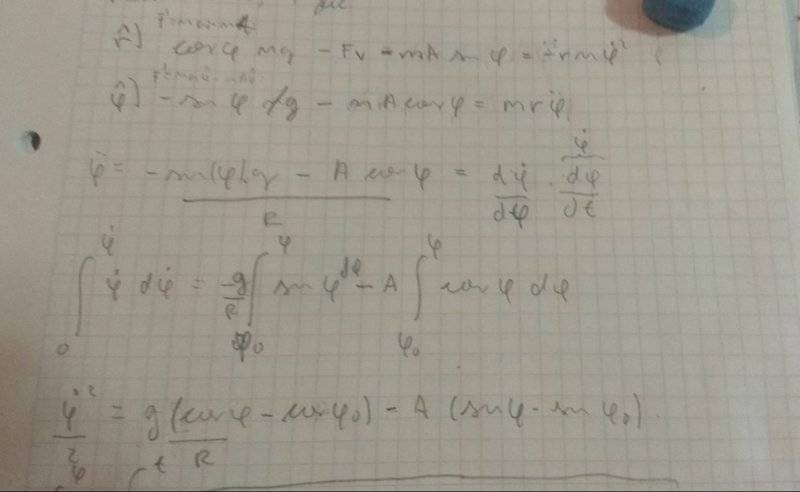 r̂) cos φ mg - Fv - mA sen φ = - r m φ̇²
φ̂) - sen φ g - mA cos φ = m r φ̈
φ̈ = (- sen(φ) g - A cos φ)/R = dφ̇/dφ · dφ/dt φ̇
∫₀^φ̇ φ̇ dφ̇ = -g/R ∫_φ₀^φ sen φ dφ - A ∫_φ₀^φ cos φ dφ
φ̇²/2 = g/R (cos φ - cos φ₀) - A (sen φ - sen φ₀)
φ t